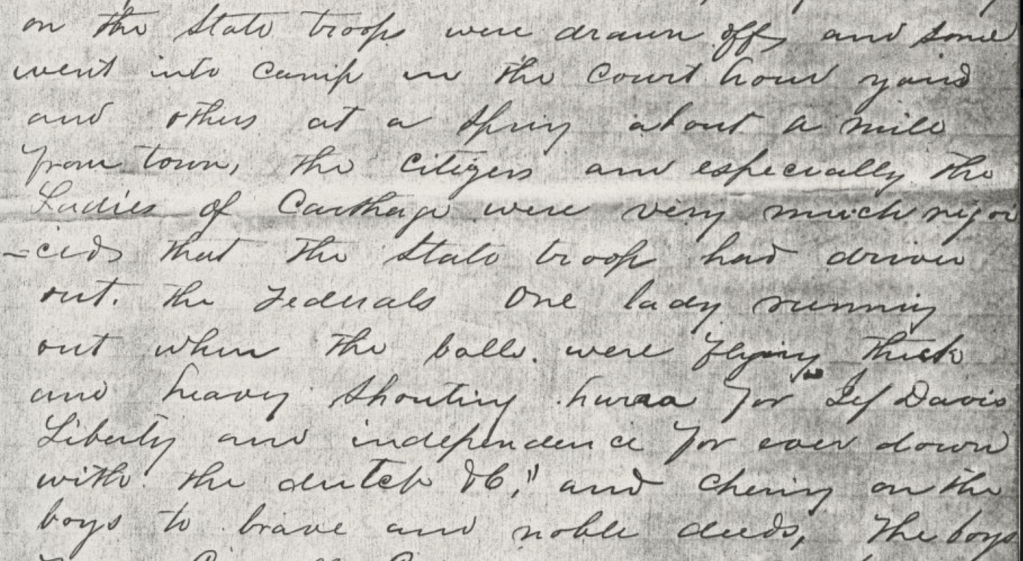 on the State troops were drawn off, and some
went into camp in the Court hous yard
and others at a Spring about a mile
from town, the citizens and especially the
Ladies of Carthage were very much rejoi
=ceds that the State troops had driven
out. the Federals One lady running
out when the balls. were flying thick
and heavy Shouting hurra for Jef Davis
Liberty and independence for ever down
with the dutch &C," and cheering on the
boys to brave and noble deeds, The boys